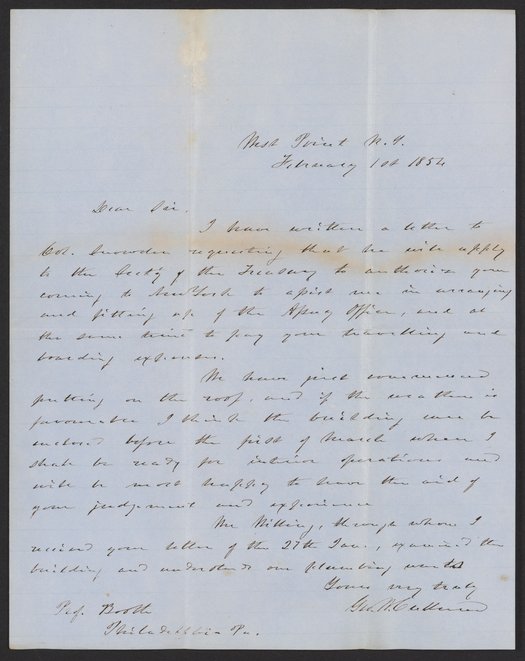 West Point N.Y.
February 1st 1854
Dear Sir,
I have written a letter to
Col. Snowden requesting that he will apply
to the Sec'ty of the Treasury to authorize your
coming to New York to assist me in arranging
and fitting up of the Assay Office, and at
the same time to pay your travelling and
boarding expenses.
We have just commenced
putting on the roof, and if the weather is
favourable I think the building will be
inclosed before the first of March when I
shall be ready for interior operations and
will be most happy to have the aid of
your judgement and experience
Mr. through whom I
received your letter of the 27th Jan., examined the
building and understands our plumbing wants
Yours very truly
Geo. W. Cullum
Prof. Booth
Philadelphia Pa.